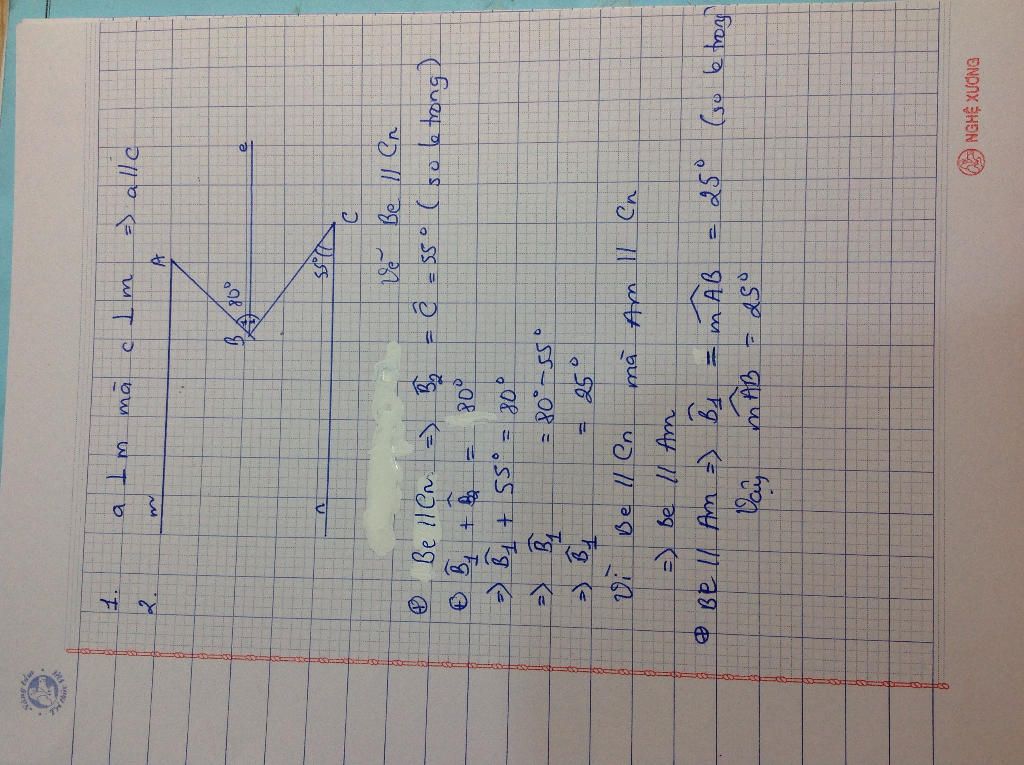 1. a ⊥ m mà c ⊥ m => a // c
2.
m
A
80°
B
1
2
e
55°
n
C
Vẽ Be // Cn
⊕ Be // Cn => B̂2 = Ĉ = 55° (so le trong)
⊕ B̂1 + B̂2 = 80°
=> B̂1 + 55° = 80°
=> B̂1 = 80° - 55°
=> B̂1 = 25°
Vì Be // Cn mà Am // Cn
=> Be // Am
⊕ Be // Am => B̂1 = mÂB = 25° (so le trong)
Vậy mÂB = 25°
NGHỆ XƯƠNG